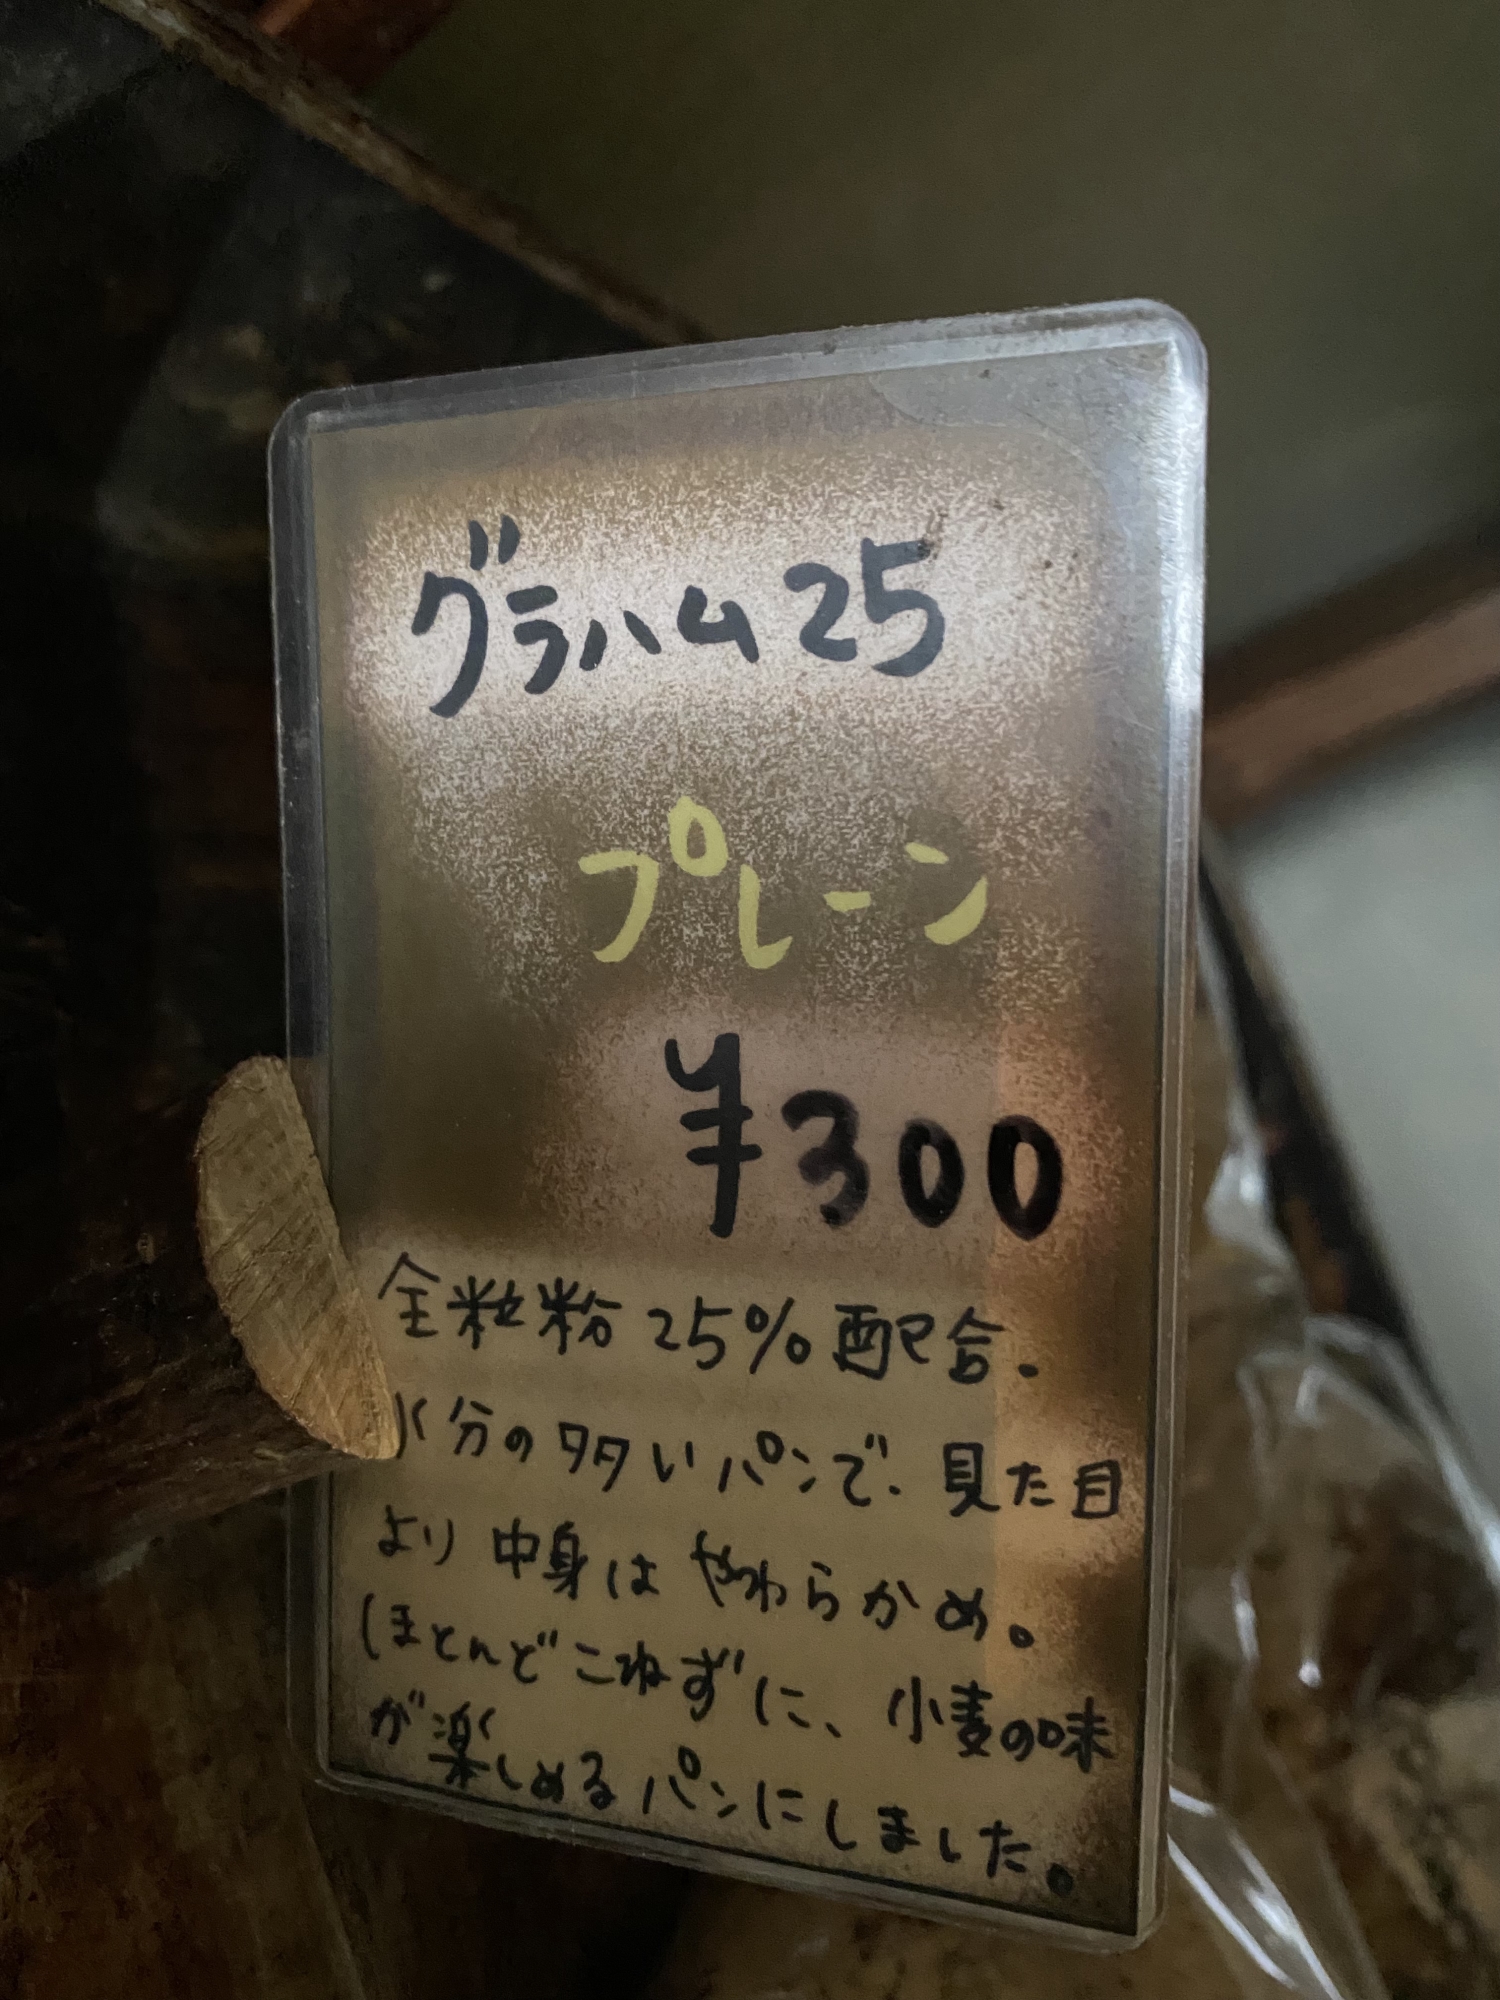 グラハム25
プレーン
¥300
全粒粉25%配合.
水分の多いパンで、見た目
より中身はやわらかめ。
ほとんどこねずに、小麦の味
が楽しめるパンにしました。